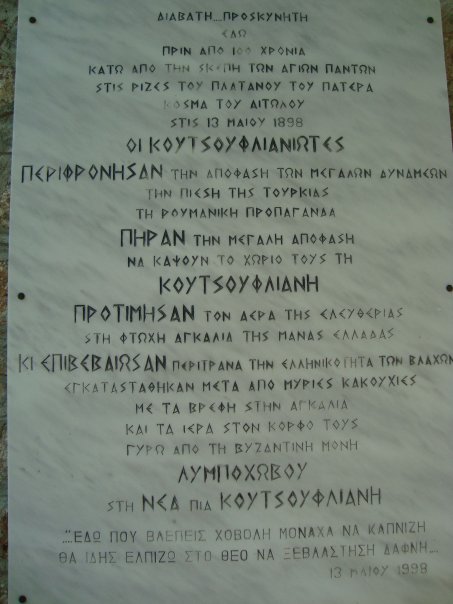 ΔΙΑΒΑΤΗ....ΠΡΟΣΚΥΝΗΤΗ
ΕΔΩ
ΠΡΙΝ ΑΠΟ 100 ΧΡΟΝΙΑ
ΚΑΤΩ ΑΠΟ ΤΗΝ ΣΚΕΠΗ ΤΩΝ ΑΓΙΩΝ ΠΑΝΤΩΝ
ΣΤΙΣ ΡΙΖΕΣ ΤΟΥ ΠΛΑΤΑΝΟΥ ΤΟΥ ΠΑΤΕΡΑ
ΚΟΣΜΑ ΤΟΥ ΑΙΤΩΛΟΥ
ΣΤΙΣ 13 ΜΑΙΟΥ 1898
ΟΙ ΚΟΥΤΣΟΥΦΛΙΑΝΙΩΤΕΣ
ΠΕΡΙΦΡΟΝΗΣΑΝ ΤΗΝ ΑΠΟΦΑΣΗ ΤΩΝ ΜΕΓΑΛΩΝ ΔΥΝΑΜΕΩΝ
ΤΗΝ ΠΙΕΣΗ ΤΗΣ ΤΟΥΡΚΙΑΣ
ΤΗ ΡΟΥΜΑΝΙΚΗ ΠΡΟΠΑΓΑΝΔΑ
ΠΗΡΑΝ ΤΗΝ ΜΕΓΑΛΗ ΑΠΟΦΑΣΗ
ΝΑ ΚΑΨΟΥΝ ΤΟ ΧΩΡΙΟ ΤΟΥΣ ΤΗ
ΚΟΥΤΣΟΥΦΛΙΑΝΗ
ΠΡΟΤΙΜΗΣΑΝ ΤΟΝ ΑΕΡΑ ΤΗΣ ΕΛΕΥΘΕΡΙΑΣ
ΣΤΗ ΦΤΩΧΗ ΑΓΚΑΛΙΑ ΤΗΣ ΜΑΝΑΣ ΕΛΛΑΔΑΣ
ΚΙ ΕΠΙΒΕΒΑΙΩΣΑΝ ΠΕΡΙΤΡΑΝΑ ΤΗΝ ΕΛΛΗΝΙΚΟΤΗΤΑ ΤΩΝ ΒΛΑΧΩΝ
ΕΓΚΑΤΑΣΤΑΘΗΚΑΝ ΜΕΤΑ ΑΠΟ ΜΥΡΙΕΣ ΚΑΚΟΥΧΙΕΣ
ΜΕ ΤΑ ΒΡΕΦΗ ΣΤΗΝ ΑΓΚΑΛΙΑ
ΚΑΙ ΤΑ ΙΕΡΑ ΣΤΟΝ ΚΟΡΦΟ ΤΟΥΣ
ΓΥΡΩ ΑΠΟ ΤΗ ΒΥΖΑΝΤΙΝΗ ΜΟΝΗ
ΛΥΜΠΟΧΩΒΟΥ
ΣΤΗ ΝΕΑ ΠΙΑ ΚΟΥΤΣΟΥΦΛΙΑΝΗ
....ΕΔΩ ΠΟΥ ΒΛΕΠΕΙΣ ΧΟΒΟΛΗ ΜΟΝΑΧΑ ΝΑ ΚΑΠΝΙΖΗ
ΘΑ ΙΔΗΣ ΕΛΠΙΖΩ ΣΤΟ ΘΕΟ ΝΑ ΞΕΒΛΑΣΤΗΣΗ ΔΑΦΝΗ....
13 ΜΑΙΟΥ 1998